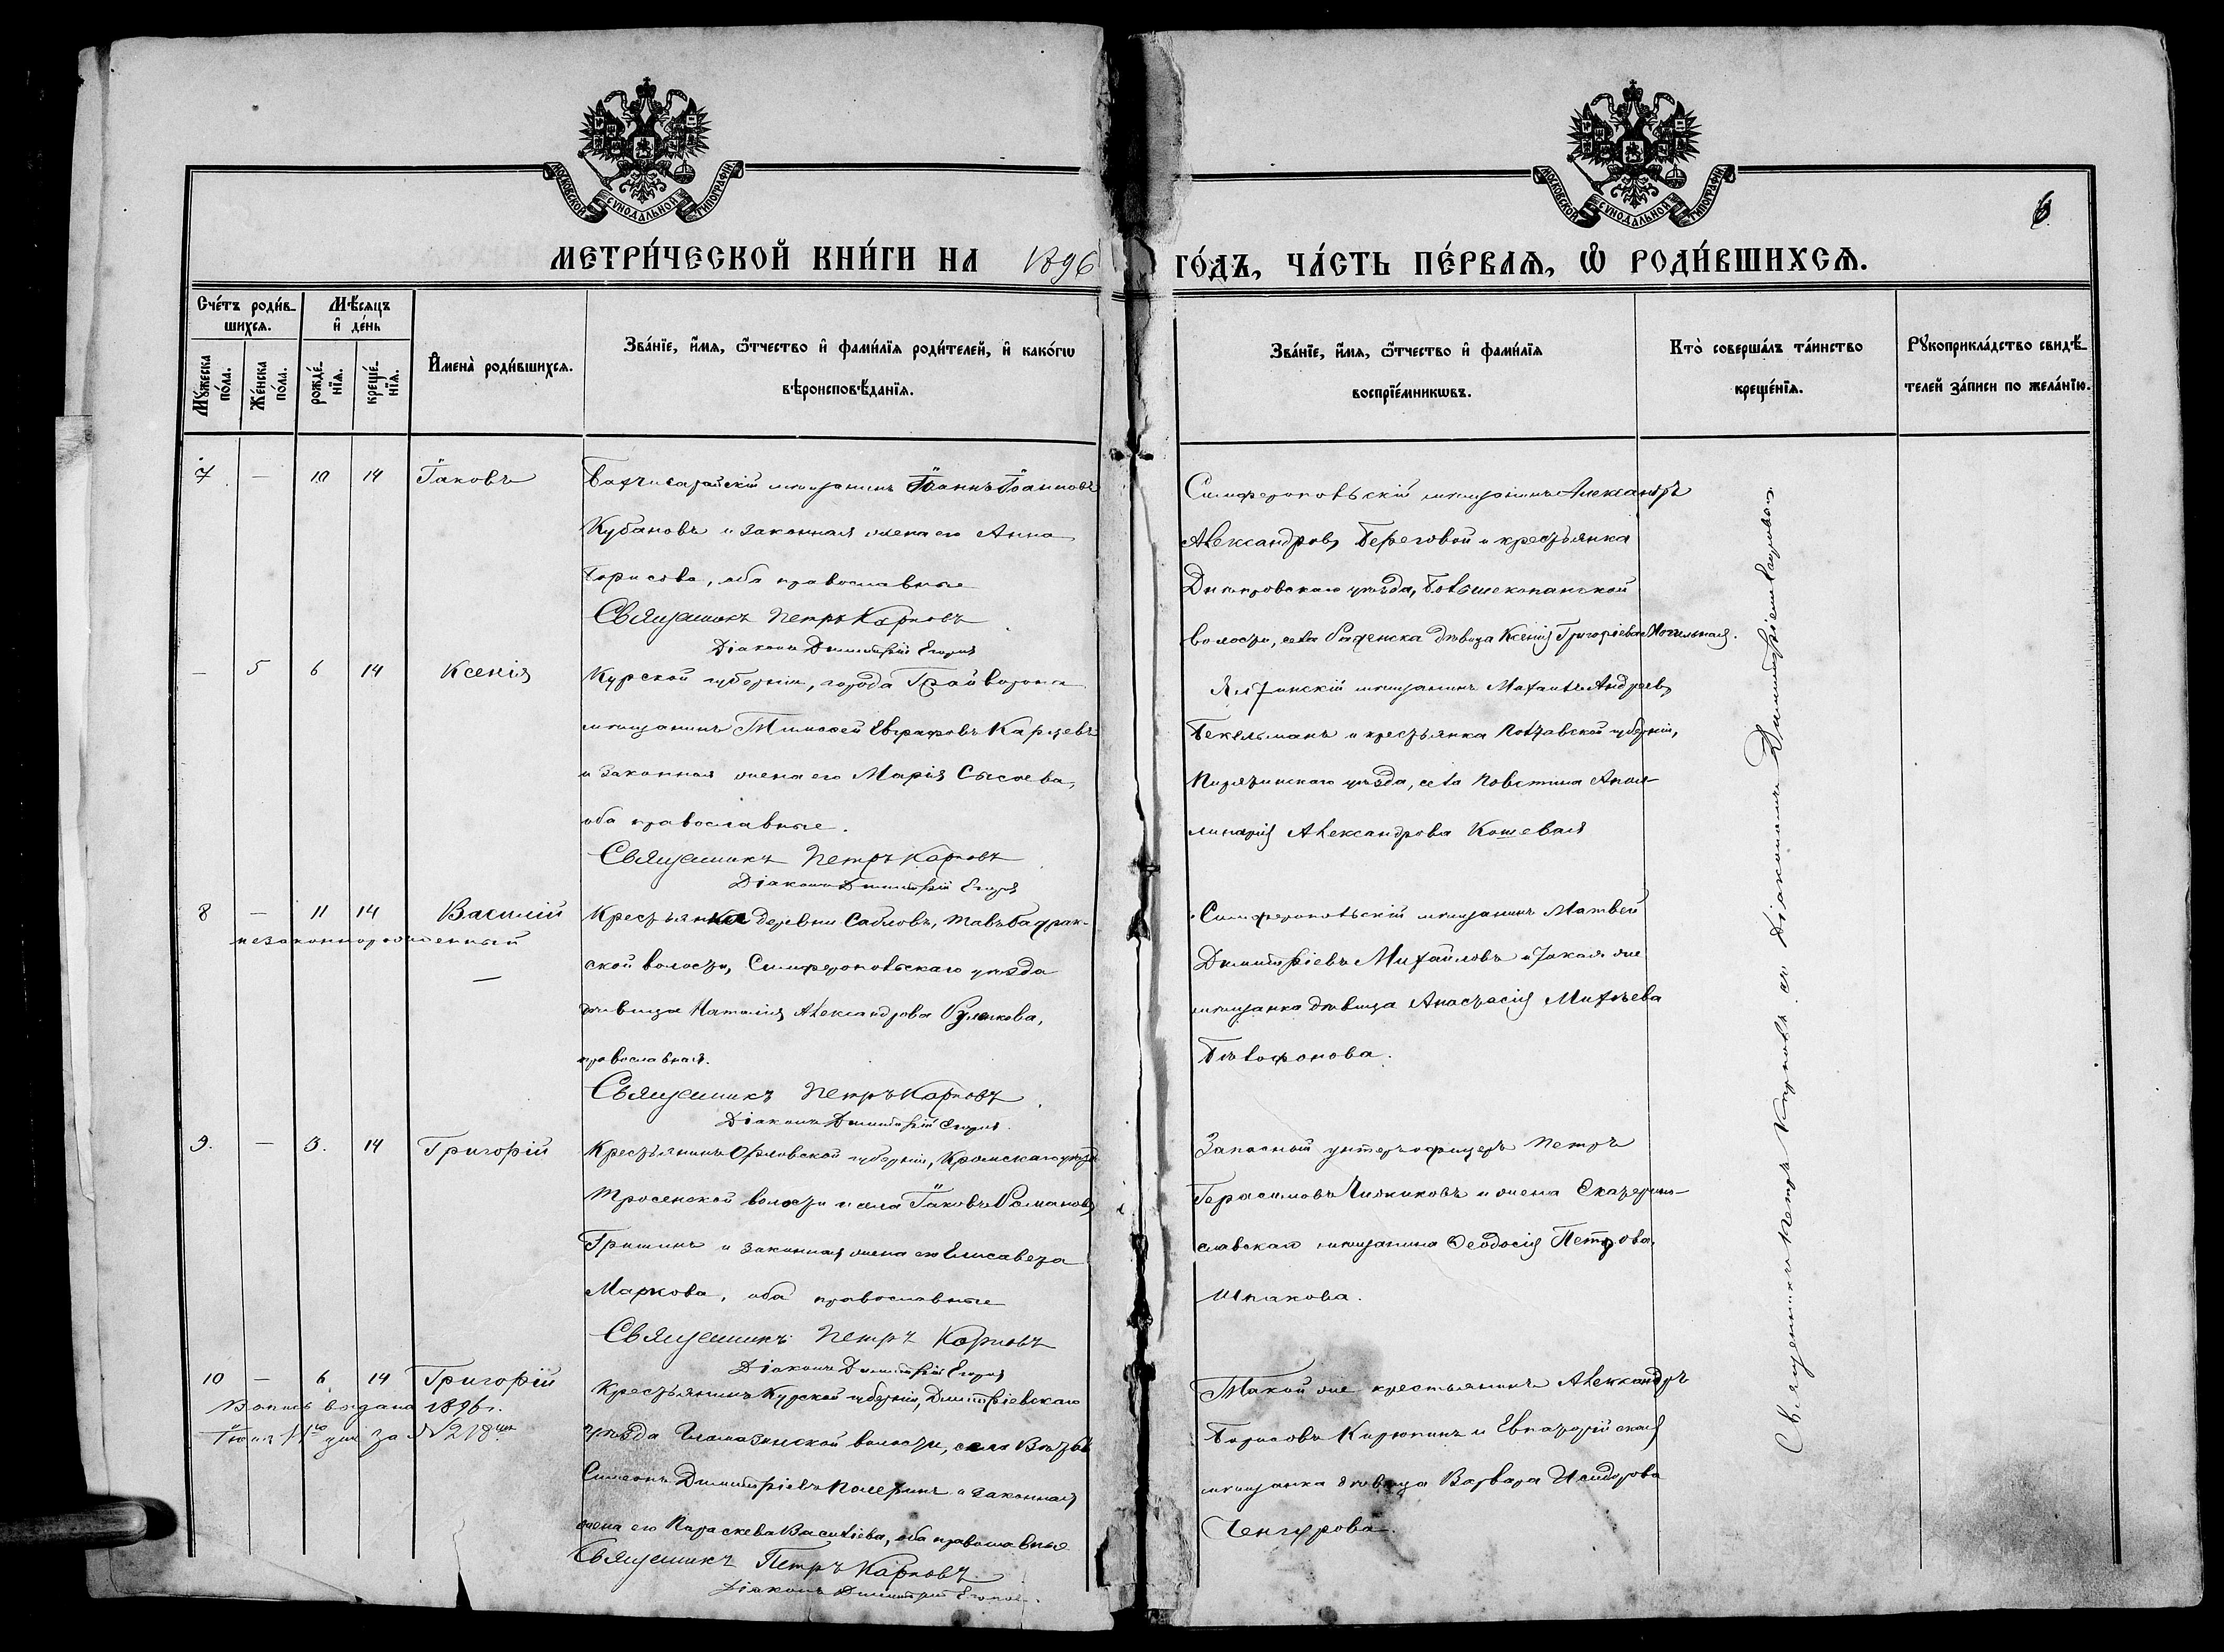 МОСКОВСКОЙ СѴНОДАЛЬНОЙ ТИПОГРАФІИ
МОСКОВСКОЙ СѴНОДАЛЬНОЙ ТИПОГРАФІИ
6
МЕТРИ́ЧЕСКОЙ КНИ́ГИ НА 1896 ГО́ДЪ, ЧА́СТЬ ПЕ́РВАѦ, Ѡ РОДИ́ВШИХСѦ.
Сче́тъ роди́в-
шихсѧ.
Мѣ́сѧцъ
и҆ де́нь
Мꙋ́жеска по́ла.
Же́нска по́ла.
рожде́-
нїѧ.
креще́-
нїѧ.
И҆мена̀ роди́вшихсѧ.
Зва́нїе, и҆́мѧ, ѻ҆́тчество и҆ фами́лїѧ роди́телей, и҆ како́гѡ
вѣроисповѣ́данїѧ.
Зва́нїе, и҆́мѧ, ѻ҆́тчество и҆ фами́лїѧ
воспрїе́мникѡвъ.
Кто̀ соверша́лъ та́инство
креще́нїѧ.
Рꙋкоприкла́дство свидѣ́-
телей за́писи по жела́нїю.
7 — 10 14 Іаковъ
Бахчисарайскій мѣщанинъ Іоаннъ Іоанновъ
Кубановъ и законная жена его Анна
Борисова, оба православные
Священникъ Петръ Карповъ
Діаконъ Димитрій
Симферопольскій мѣщанинъ Александръ
Александровъ Береговой и крестьянка
Днѣпровскаго уѣзда,
волости, села дѣвица Ксенія Григоріева Могильная.
— 5 6 14 Ксенія
Курской губерніи, города Грайворона
мѣщанинъ Тимофей Евграфовъ Карцевъ
и законная жена его Марія Сысоева,
оба православные.
Священникъ Петръ Карповъ
Діаконъ Димитрій
Ялтинскій мѣщанинъ Михаилъ Андреевъ
Бекельманъ и крестьянка Полтавской губерніи,
Пирятинскаго уѣзда, села Повстина Апол-
линарія Александрова Кошевая
8 — 11 14 Василій
незаконнорожденный
—
Крестьянка деревни Сабловъ, Тавъ-Бадрак-
ской волости, Симферопольскаго уѣзда
дѣвица Наталія Александрова Куликова,
православная.
Священникъ Петръ Карповъ
Діаконъ Димитрій
Симферопольскій мѣщанинъ Матвей
Димитріевъ Михайловъ и такая же
мѣщанка дѣвица Анастасія Михѣева
9. — 3. 14 Григорій
Крестьянинъ Орловской губерніи, Кромскаго уѣзда
Тросенской волости и села Іаковъ Романовъ
Гришинъ и законная жена его Елисавета
Маркова, оба православные
Священникъ Петръ Карповъ
Діаконъ Димитрій
Запасный унтеръ-офицеръ Петръ
Герасимовъ Чижиковъ и жена Екатерино-
славскаго мѣщанина Ѳеодосія Петрова
Шпакова.
10 — 6 14 Григорій
выдана 1896 г.
за №
Крестьянинъ Курской губерніи, Дмитріевскаго
уѣзда волости, села
Симеонъ Димитріевъ и законная
жена его Параскева Василіева, оба православные
Священникъ Петръ Карповъ
Діаконъ Димитрій
Такой же крестьянинъ Александръ
Борисовъ Кирюпинъ и Евпаторійская
мѣщанка дѣвица Варвара Исидорова
Ченгурова.
Священникъ Петръ Карповъ съ діакономъ Димитріемъ